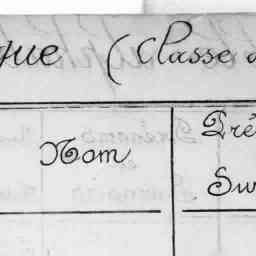 que (Classe d
Nom
Pré
Sur